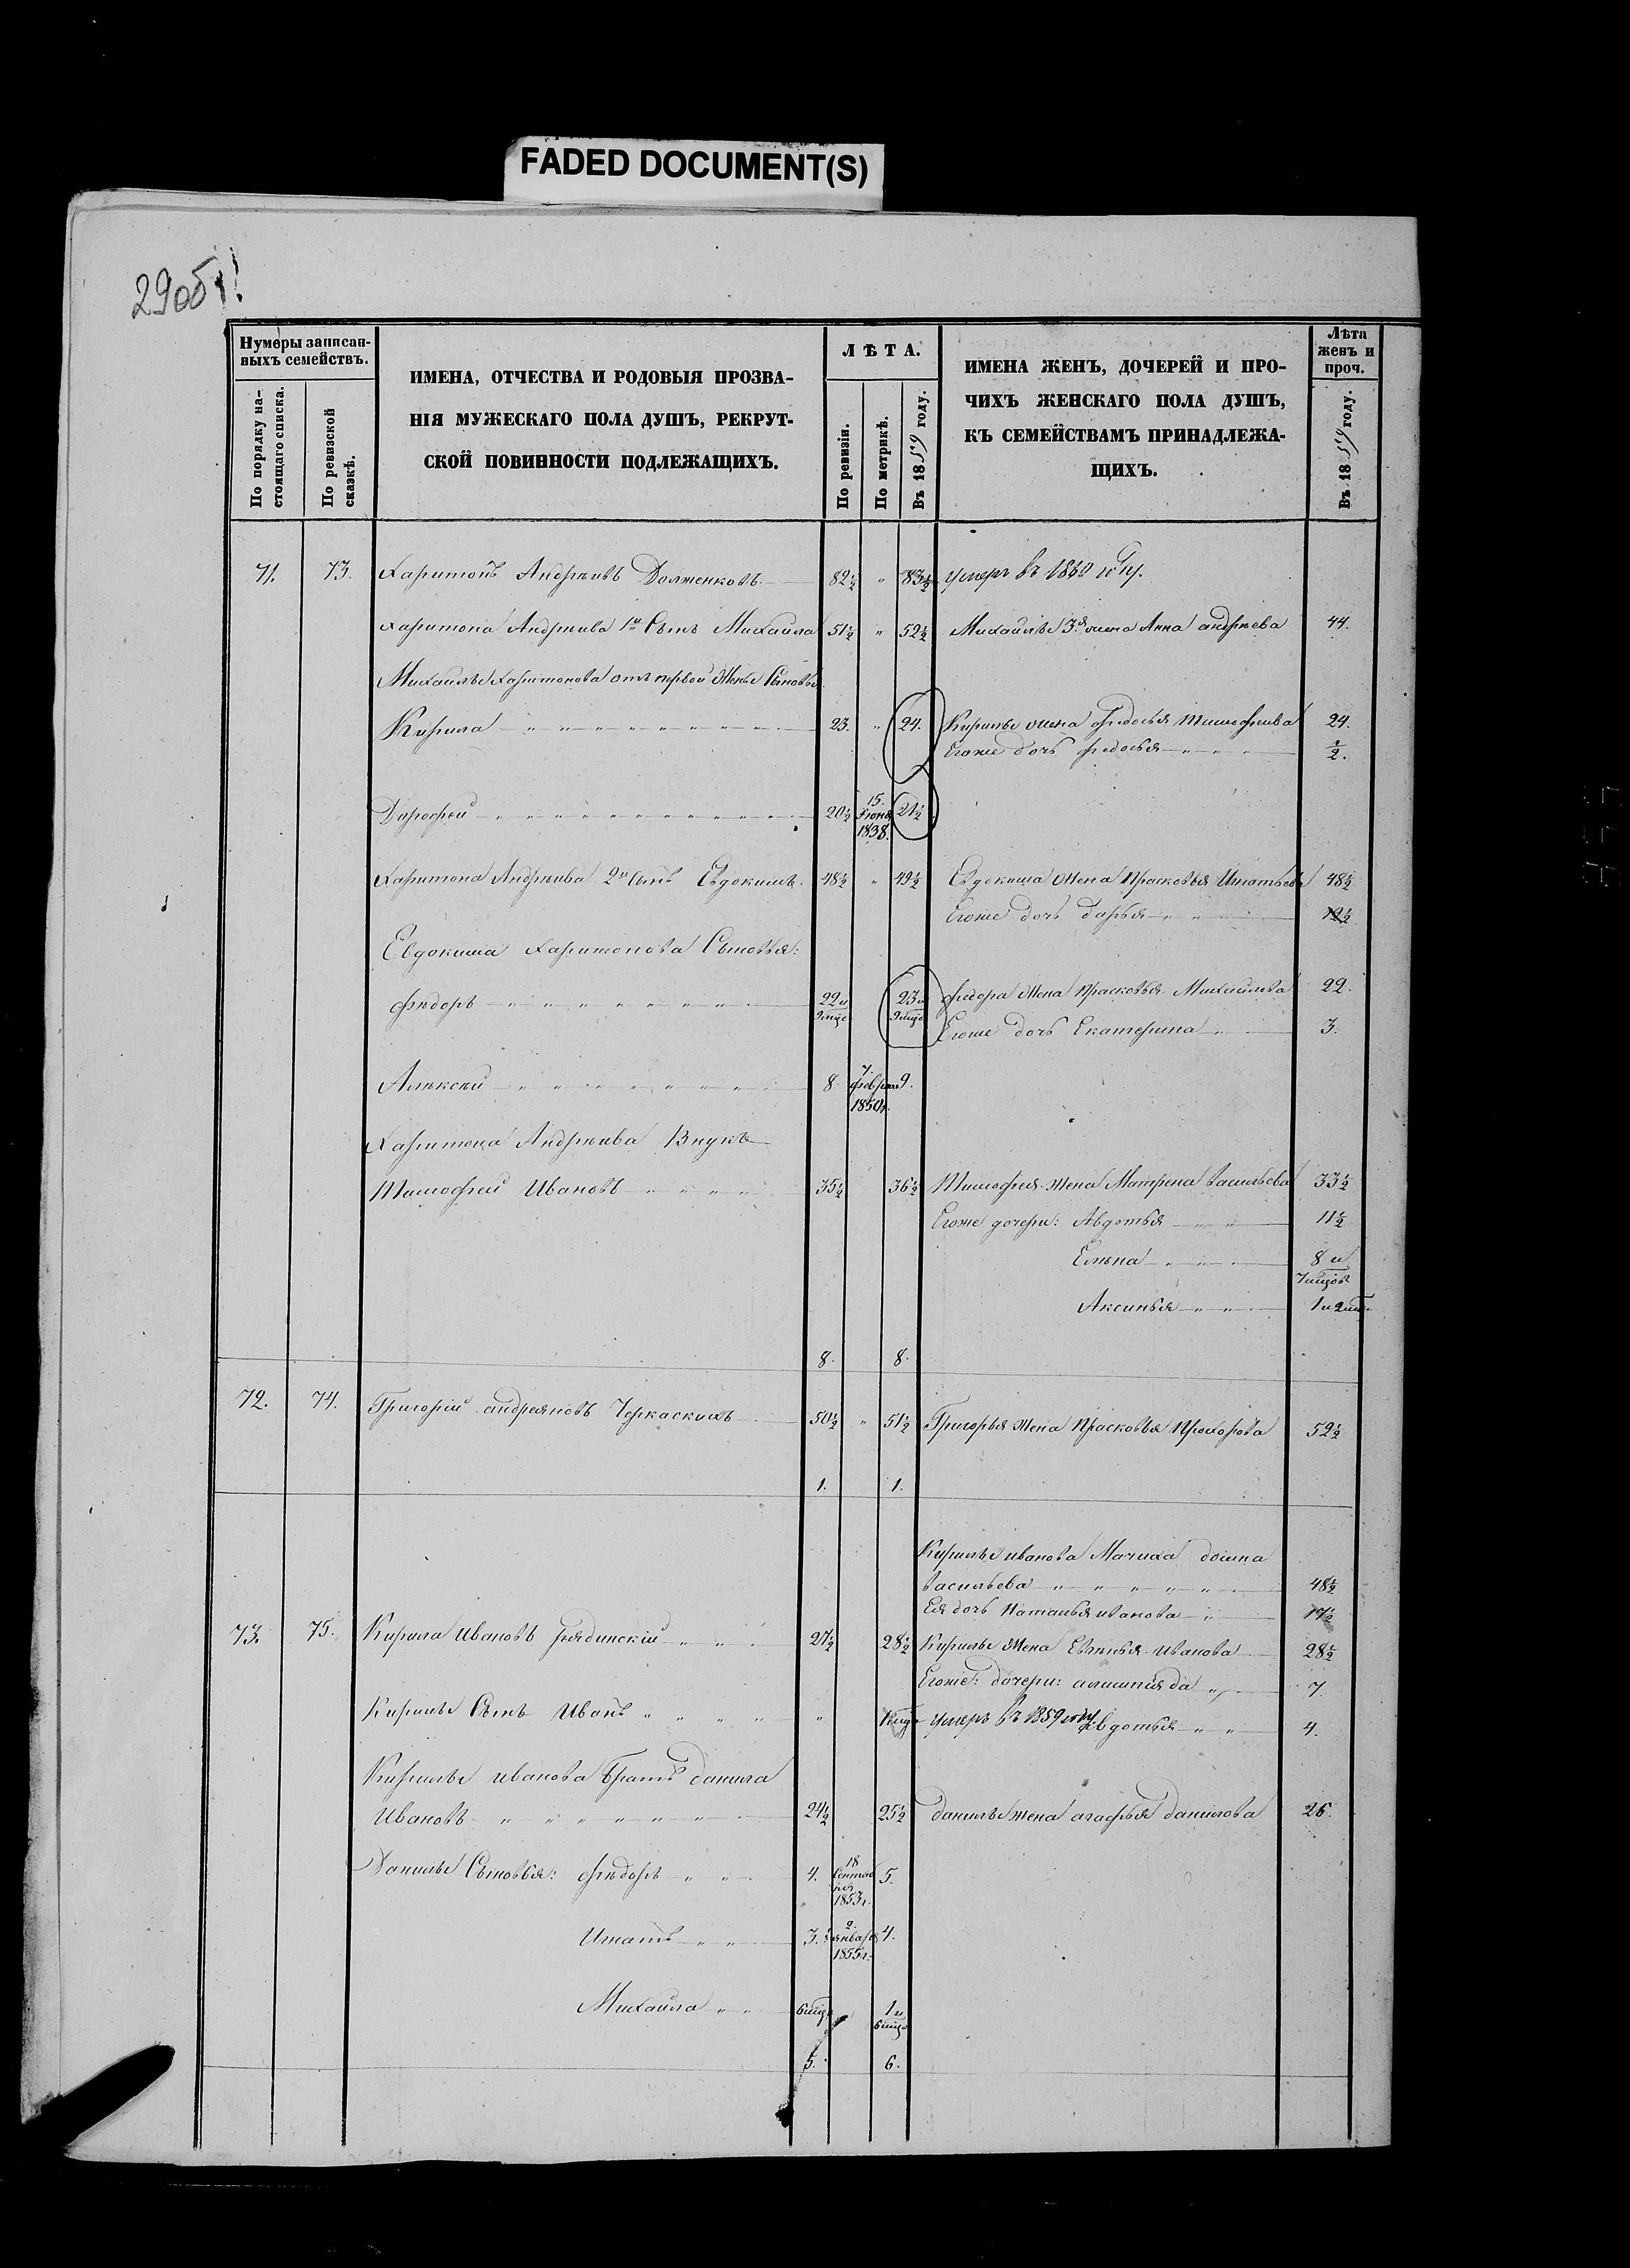 FADED DOCUMENT(S)
29об
Нумеры записан-
ныхъ семействъ.
По порядку на-
стоящаго списка.
По ревизской
сказкѣ.
ИМЕНА, ОТЧЕСТВА И РОДОВЫЯ ПРОЗВА-
НІЯ МУЖЕСКАГО ПОЛА ДУШЪ, РЕКРУТ-
СКОЙ ПОВИННОСТИ ПОДЛЕЖАЩИХЪ.
ЛѢТА.
По ревизіи.
По метрикѣ.
Въ 1859 году.
ИМЕНА ЖЕНЪ, ДОЧЕРЕЙ И ПРО-
ЧИХЪ ЖЕНСКАГО ПОЛА ДУШЪ,
КЪ СЕМЕЙСТВАМЪ ПРИНАДЛЕЖА-
ЩИХЪ.
Лѣта
женъ и
проч.
Въ 1859 году.
71. 73. Харитонъ Андрѣивъ Долженковъ 82½ " 83½ умеръ въ
Харитона Андрѣива 1й Сынъ Михайла 51½ " 52½ Михайлы 3я жена Анна андрѣева 44.
Михайлы Харитонова отъ первой Жены Сыновья
Кирила 23. " 24. Кирилы жена федосья тимофеива 24.
Егоже дочь федосья ½.
Дорофей 20½ 15. Июня 1838. 21½
Харитона Андрѣива 2й Сынъ Евдокимъ 48½ " 49½ Евдокима Жена Прасковья Игнатьева 48½
Егоже дочь дарья 19½
Евдокима Харитонова Сыновья:
фѣдоръ 22 и 9 мцо 23 и 9 мцо федора Жена Прасковья Михайлова 22.
Егоже дочь Екатерина 3.
Алѣксѣй 8. 7. февра 1850г. 9.
Харитона Андрѣива Внукъ
Тимофей Ивановъ 35½ 36½ Тимофея Жена Матрена васильева 33½
Егоже дочери: Авдотья 11½
Елѣна 8 и 7 мцов
Аксинья 1 и 2 мц
8. 8.
72. 74. Григорій андреяновъ Черкаскихъ 50½ " 51½ Григорья Жена Прасковья Прохорова 52½
1. 1.
Кирилы иванова Мачиха домна
васильева 48½
Ея дочь Наталья иванова 17½
73. 75. Кирила Ивановъ рядинскій 27½ 28½ Кирилы Жена Евгѣнья иванова 28½
Егоже: дочери: 7.
Кирилы Сынъ Иванъ " умеръ въ 1859 году авдотья 4.
Кирилы иванова братъ данила
Ивановъ 24½ 25½ данилы жена агафья данилова 26.
Данилы Сыновья: фѣдоръ 4. 18 Сентября 1853г. 5.
Игнатъ 3. 2. января 1855г. 4.
Михайла 6 мцо 1 и 6 мцо
5. 6.